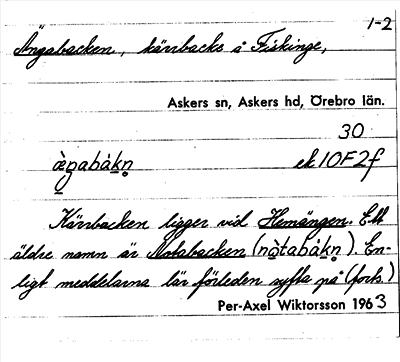 1-2
Ängabacken, kärrbacke å Fiskinge,
Askers sn, Askers hd, Örebro län.
30
æ̀ŋabàkn̥ ek 10F2f
Kärrbacken ligger vid Hemängen. Ett
äldre namn är Notabacken (nòtabàkn̥). En-
ligt meddelarna lär förleden syfta på (forts.)
Per-Axel Wiktorsson 1963